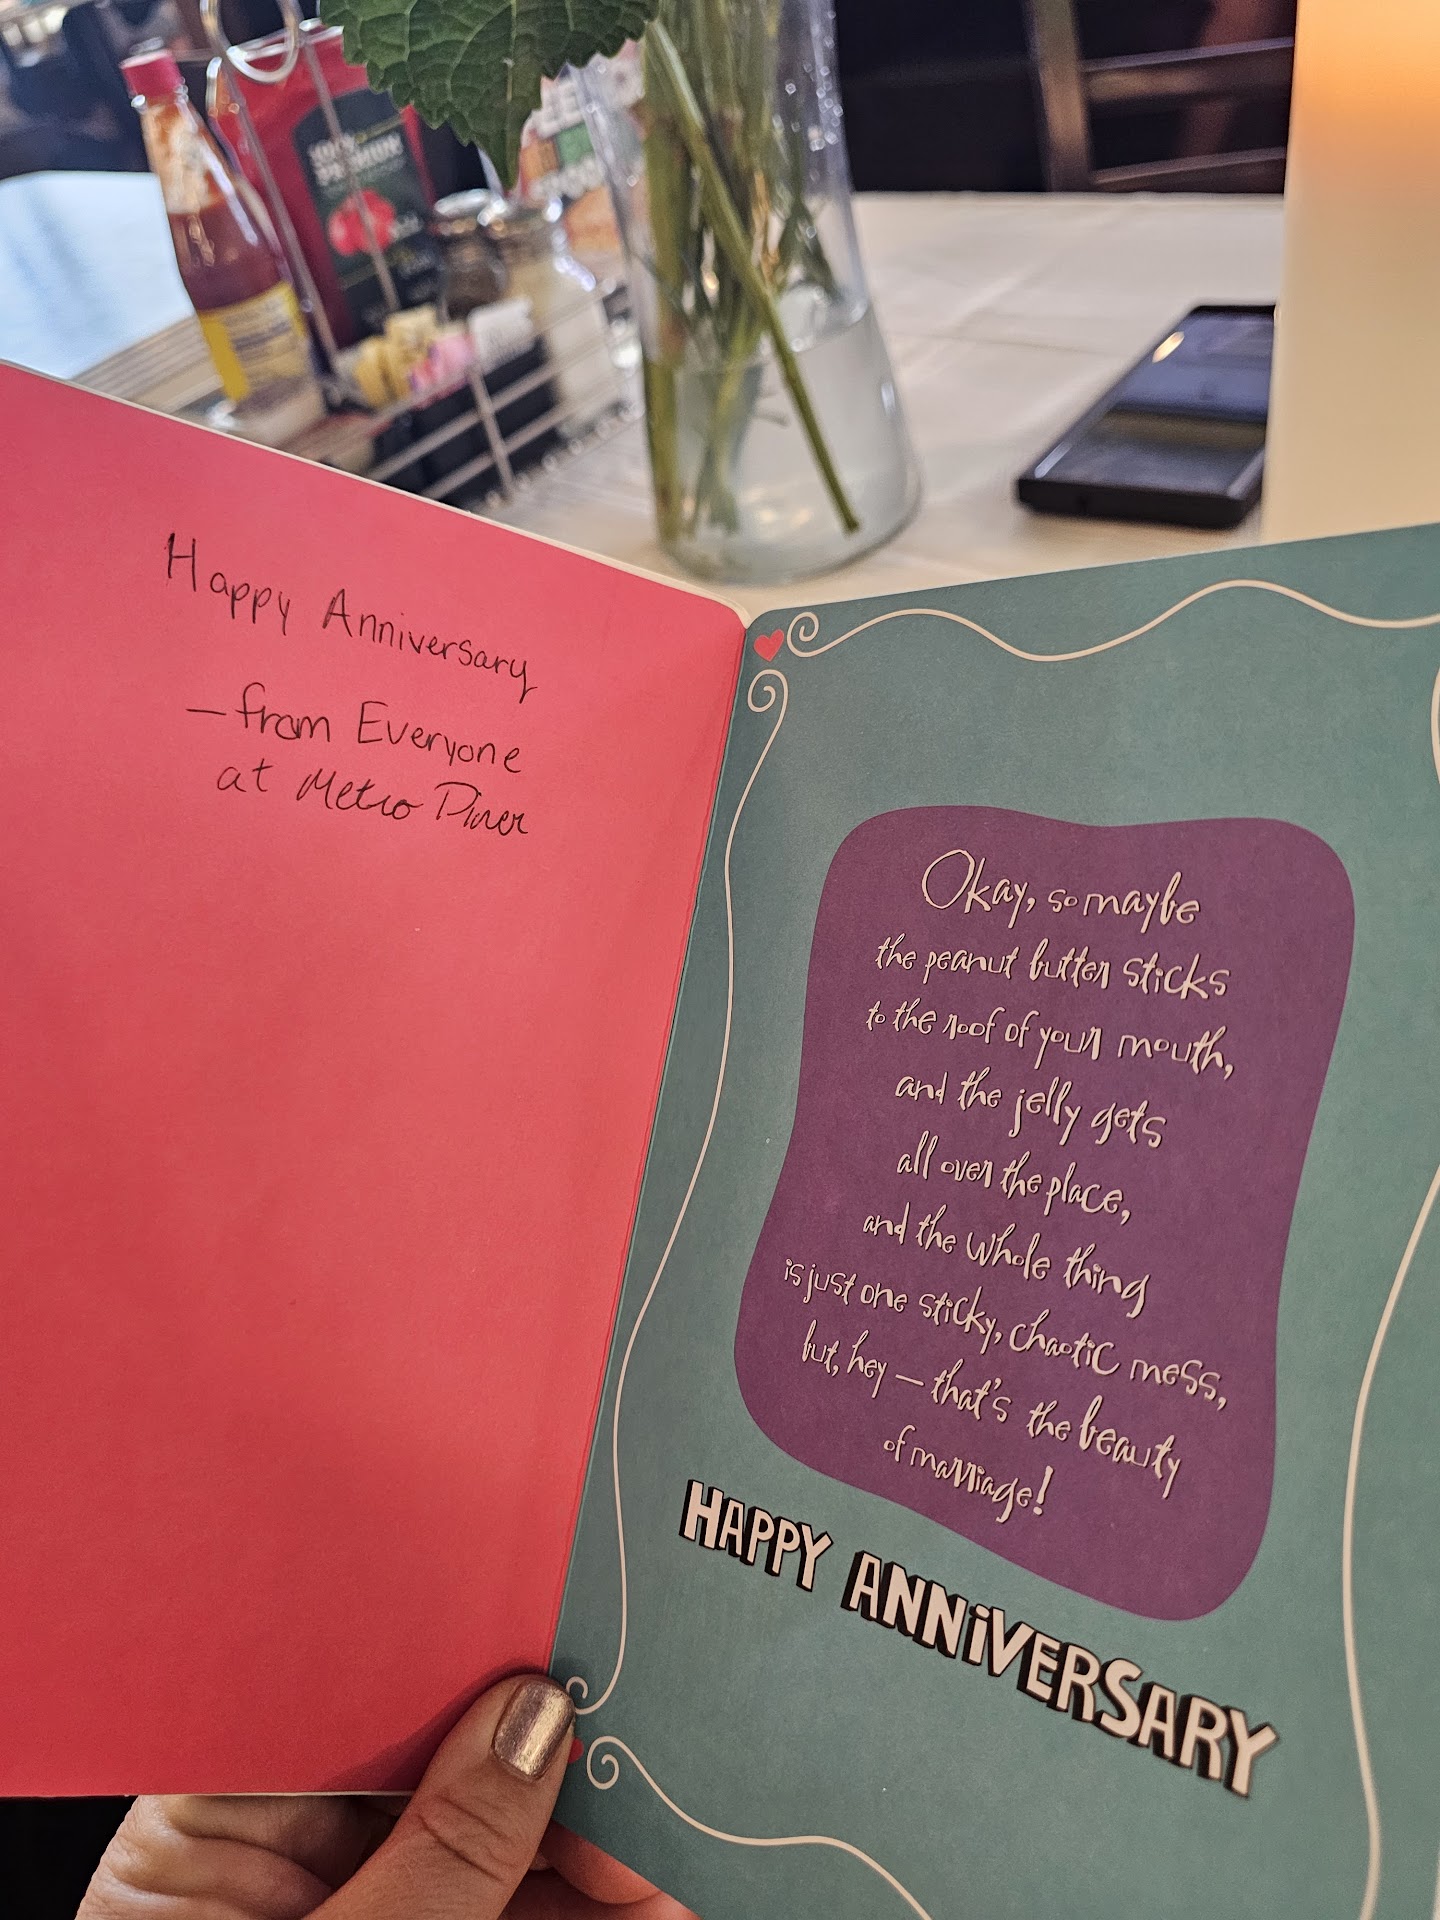 100%
Happy Anniversary
—from Everyone
at Metro Diner
Okay, so maybe
the peanut butter sticks
to the roof of your mouth,
and the jelly gets
all over the place,
and the whole thing
is just one sticky, chaotic mess,
but, hey — that's the beauty
of marriage!
HAPPY ANNIVERSARY